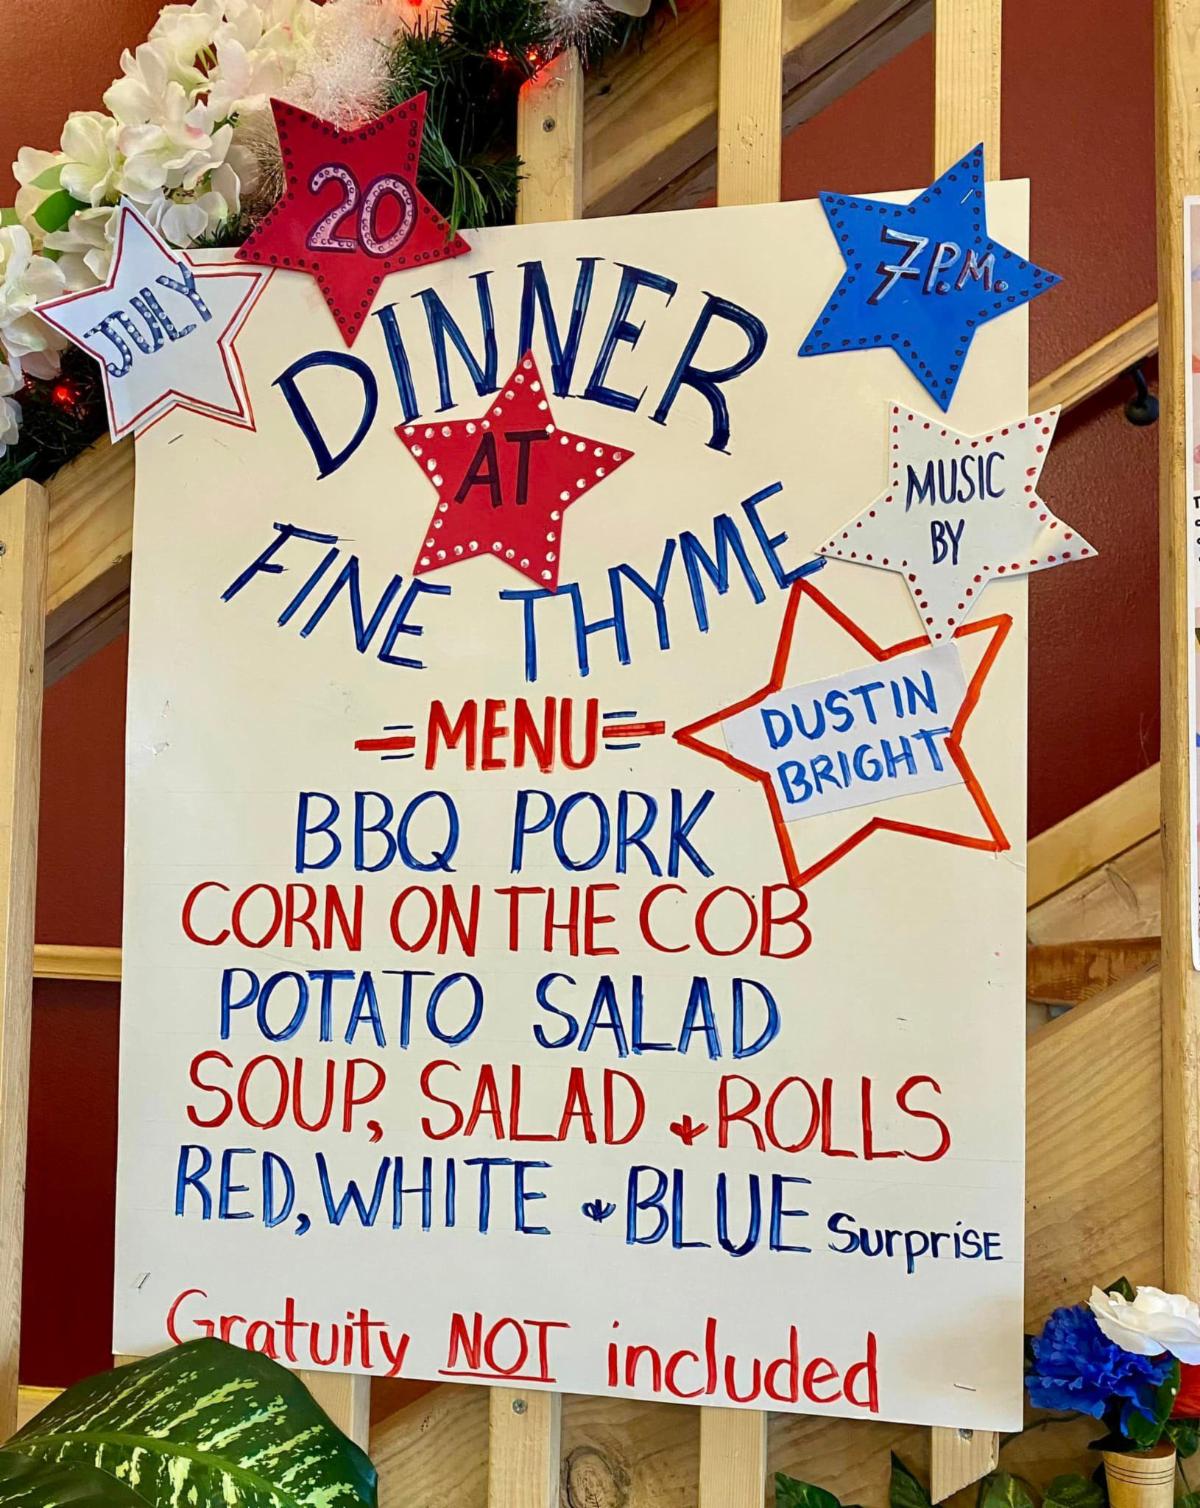 JULY
20
7 P.M.
DINNER
AT
FINE THYME
MUSIC
BY
DUSTIN
BRIGHT
=MENU=
BBQ PORK
CORN ON THE COB
POTATO SALAD
SOUP, SALAD & ROLLS
RED, WHITE & BLUE Surprise
Gratuity NOT included